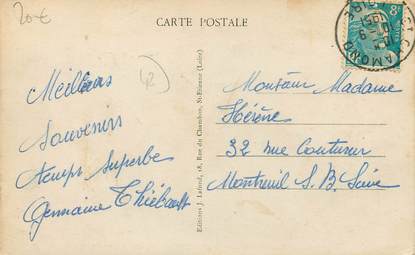 20€
CARTE POSTALE
8F
ST CHAMOND
LOIRE
1951
42
Meilleurs
Souvenirs
temps superbe
Germaine Thiébault
Editions J. Lafond, 18, Rue du Chambon, St-Etienne (Loire)
Monsieur Madame
Hérène
32 rue Couturier
Montreuil S. B. Seine